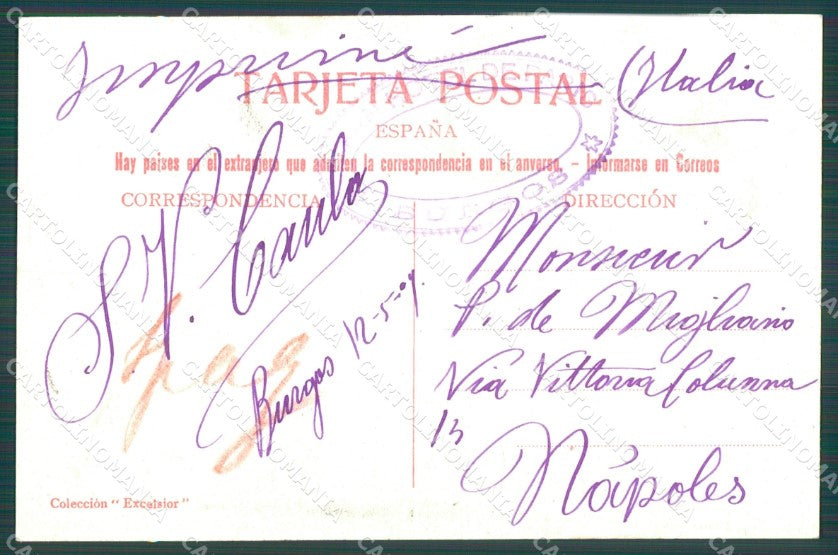 Imprimé
(Italia
TARJETA POSTAL
ESPAÑA
Hay paises en el extranjero que admiten la correspondencia en el anverso. - Informarse en Correos
CORRESPONDENCIA
DIRECCIÓN
S. V. Caula
Burgos 12-5-09.
Monsieur
P. de Migliano
Via Vittoria Colunna
13
Nápoles
Colección "Excelsior"
CARTOLINOMANIA